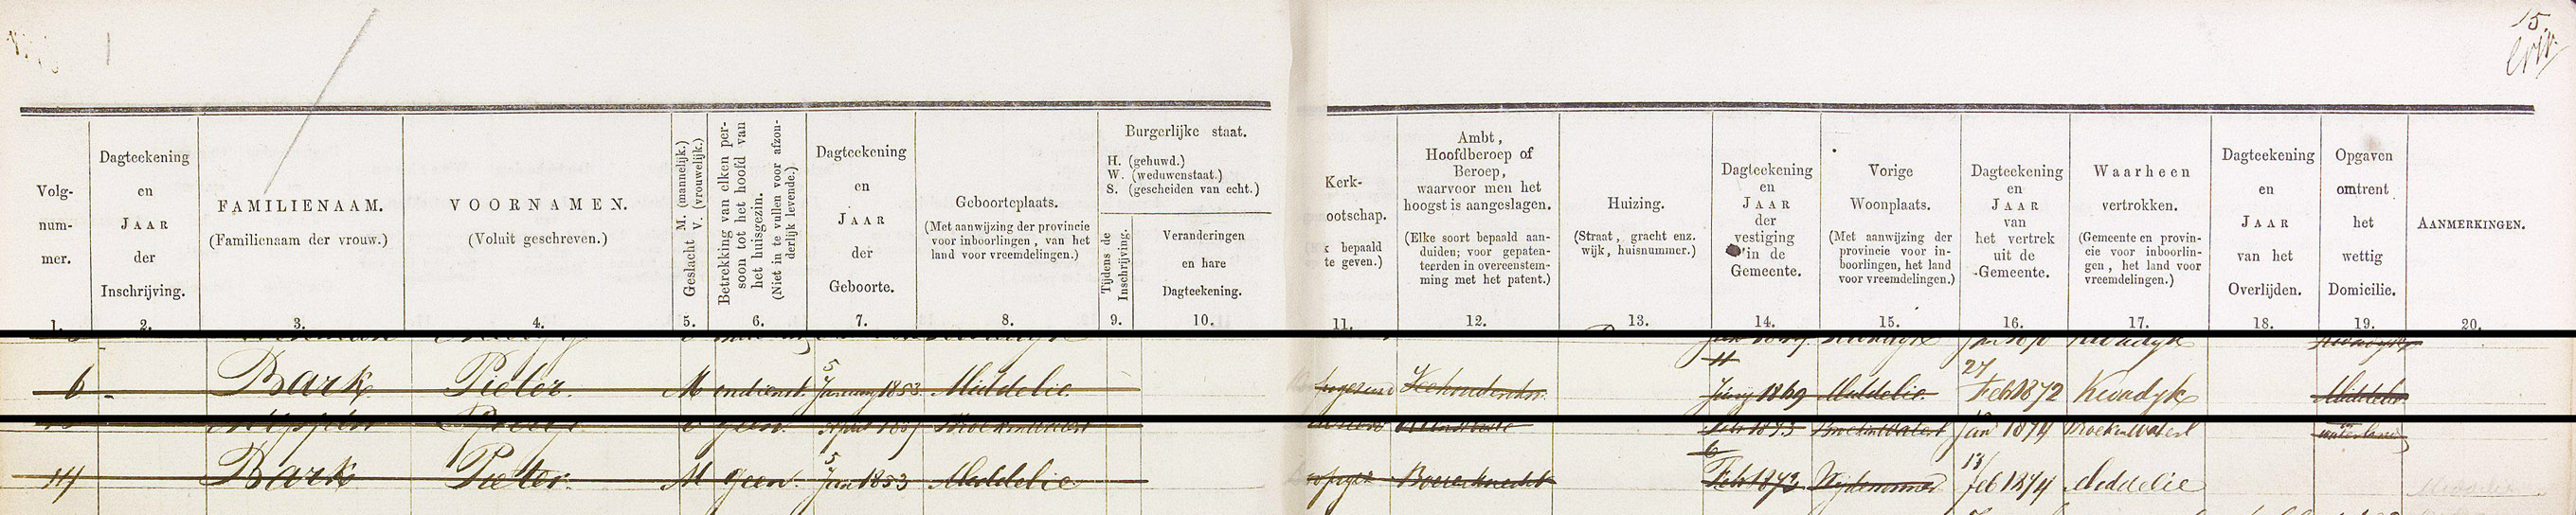 15
Volg-
num-
mer.
1.
Dagteekening
en
JAAR
der
Inschrijving.
2.
FAMILIENAAM.
(Familienaam der vrouw.)
3.
VOORNAMEN.
(Voluit geschreven.)
4.
Geslacht M. (mannelijk.)
V. (vrouwelijk.)
5.
Betrekking van elken per-
soon tot het hoofd van
het huisgezin.
(Niet in te vullen voor afzon-
derlijk levende.)
6.
Dagteekening
en
JAAR
der
Geboorte.
7.
Geboorteplaats.
(Met aanwijzing der provincie
voor inboorlingen, van het
land voor vreemdelingen.)
8.
Burgerlijke staat.
H. (gehuwd.)
W. (weduwenstaat.)
S. (gescheiden van echt.)
Tijdens de
Inschrijving.
9.
Veranderingen
en hare
Dagteekening.
10.
Kerk-
ootschap.
bepaald
te geven.)
11.
Ambt,
Hoofdberoep of
Beroep,
waarvoor men het
hoogst is aangeslagen.
(Elke soort bepaald aan-
duiden; voor gepaten-
teerden in overeenstem-
ming met het patent.)
12.
Huizing.
(Straat, gracht enz.
wijk, huisnummer.)
13.
Dagteekening
en
JAAR
der
vestiging
in de
Gemeente.
14.
Vorige
Woonplaats.
(Met aanwijzing der
provincie voor in-
boorlingen, het land
voor vreemdelingen.)
15.
Dagteekening
en
JAAR
van
het vertrek
uit de
Gemeente.
16.
Waarheen
vertrokken.
(Gemeente en provin-
cie voor inboorlin-
gen, het land voor
vreemdelingen.)
17.
Dagteekening
en
JAAR
van het
Overlijden.
18.
Opgaven
omtrent
het
wettig
Domicilie.
19.
AANMERKINGEN.
20.
6 Bark Pieter M en dienst. 5 January 1853 Middelie. 11 Juny 1869 Middelie 27 Feb 1872 Kwadyk Middelie
14 Bark Pieter M geen 5 Jan 1853 Middelie Boereknecht 6 Feb 1873 Wydewormer 13 feb 1874 Middelie